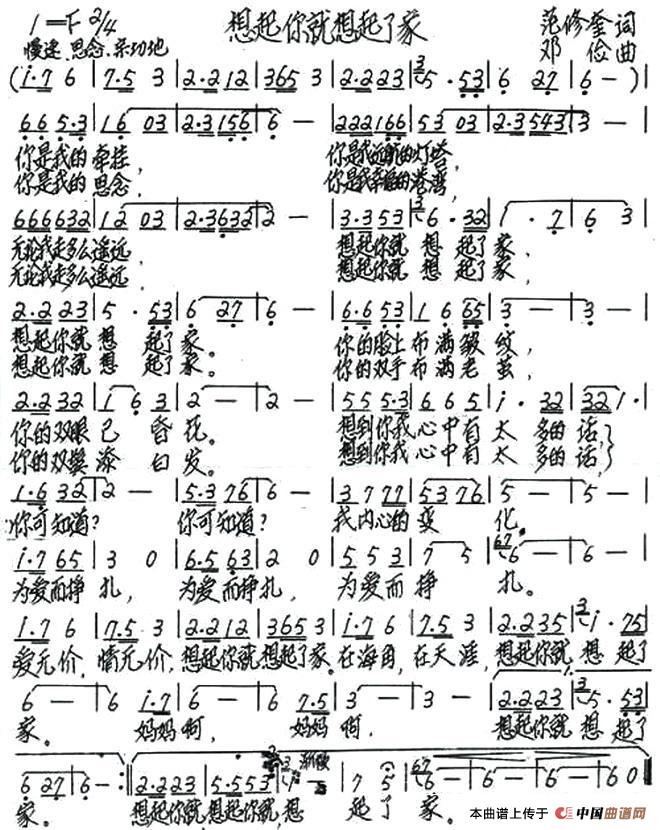 1=F 2/4 想起你就想起了家 范修奎词
慢速、思念、亲切地 邓俭曲
(i·7 6 | 7·5 3 | 2·2 12 | 365 3 | 2·2 23 | 5·53 | 6 27 | 6 - )|
6 6 5·3 | 16 03 | 2·3 156 | 6 - | 222166 | 53 03 | 2·3543 | 3 - |
你是我的牵挂， 你是我远航的灯塔，
你是我的思念， 你是我幸福的港湾，
666632 | 12 03 | 2·3632 | 2 - | 3·3 53 | 6·32 | 1·7 | 6 3 |
无论我走多么遥远， 想起你就想起了家，
无论我走多么遥远， 想起你就想起了家，
2·2 23 | 5·53 | 6 27 | 6 - | 6·6 53 | 1 6 65 | 3 - | 3 - |
想起你就想起了家。 你的脸上布满皱纹，
想起你就想起了家。 你的双手布满老茧，
2·2 32 | 1 6 3 | 2 - | 2 - | 55 5·3 | 6 6 5 | i·32 | 32 1·|
你的双眼已昏花。 想到你我心中有太多的话，
你的双鬓添白发。 想到你我心中有太多的话，
1·6 32 | 2 - | 5·3 76 | 6 - | 3 7 77 | 53 76 | 5 - | 5 - |
你可知道？ 你可知道？ 我内心的变化。
i·7 65 | 3 0 | 6·5 63 | 2 0 | 5 5 3 | 7 5 | 6 - | 6 - |
为爱而挣扎， 为爱而挣扎， 为爱而挣扎。
i·7 6 | 7·5 3 | 2·2 12 | 365 3 | i·7 6 | 7·5 3 | 2·2 35 | i·75 |
爱无价，情无价，想起你就想起了家。在海角，在天涯，想起你就想起了
6 - | 6 i·7 | 6 - | 6 7·5 | 3 - | 3 - | 2·2 23 | 5·53 |
家。 妈妈啊， 妈妈啊， 想起你就想起了
6 27 | 6 - :‖ 2·2 23 | 5·5 53 | 渐慢 | 7 5 | 6 - | 6 - | 6 - | 6 0 ‖
家。 想起你就想起你就，想起了家。
本曲谱上传于 中国曲谱网